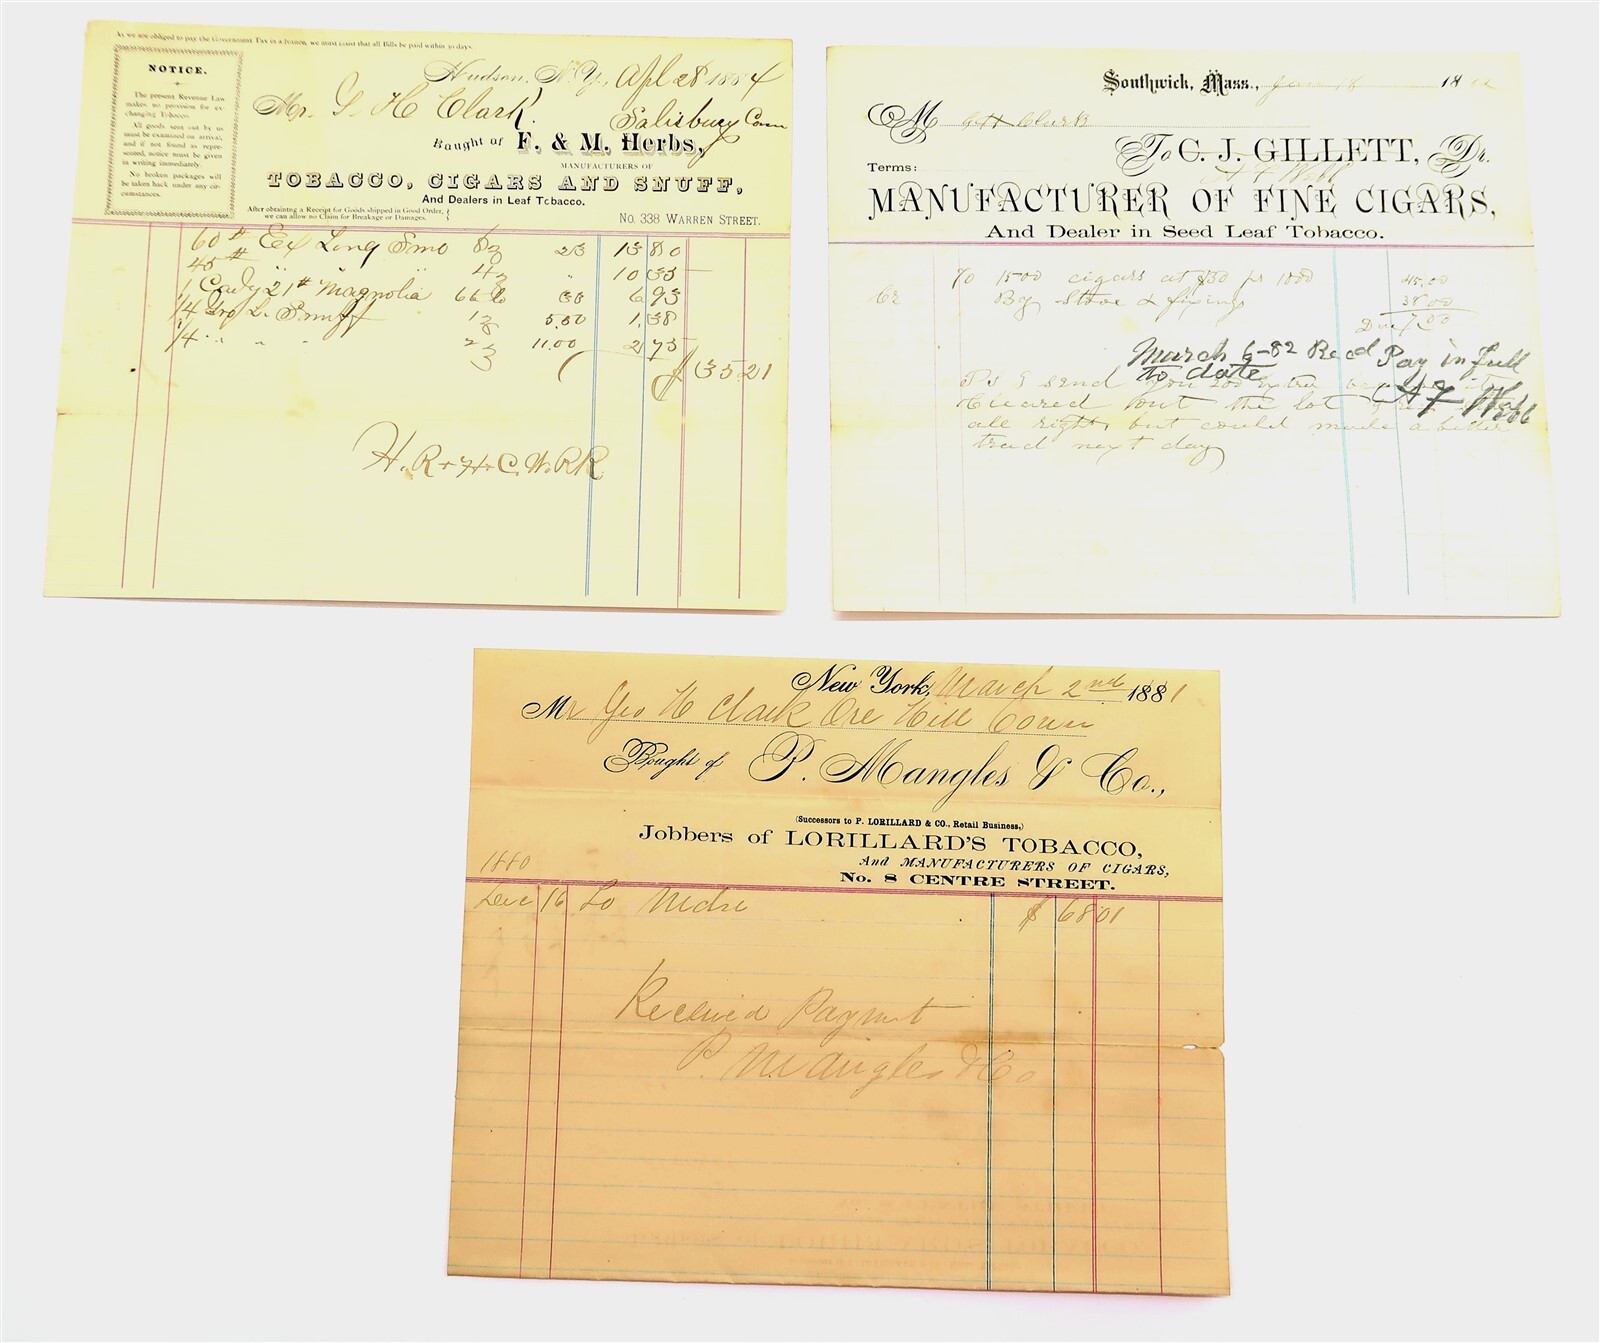 As we are obliged to pay the Government Tax in advance, we must insist that all Bills be paid within 30 days.
NOTICE.
The present Revenue Law
makes no provision for ex-
changing Tobacco.
All goods sent out by us
must be examined on arrival,
and if not found as repre-
sented, notice must be given
in writing immediately.
No broken packages will
be taken back under any cir-
cumstances.
Hudson, N. Y., Apl 28 1884
Mr. G H Clark
Salisbury Conn
Bought of F. & M. Herbs,
MANUFACTURERS OF
TOBACCO, CIGARS AND SNUFF,
And Dealers in Leaf Tobacco.
After obtaining a Receipt for Goods shipped in Good Order,
we can allow no Claim for Breakage or Damages.
No. 338 WARREN STREET.
60 # Ex Long Smo 23 13 80
45 # " " 10 35
1 Cady 21 # "Magnolia" 6 93
1/4 Gro L. Snuff 5.50 1.38
1/4 " " " 11.00 2 75
$ 35 21
H. R + H. C. W. RR
Southwick, Mass., Jan 18 1882
M G H Clark
To C. J. GILLETT, Dr.
A F Webb
Terms:
MANUFACTURER OF FINE CIGARS,
And Dealer in Seed Leaf Tobacco.
To 1500 cigars at $30 pr 1000 45.00
Cr By Stove & fixings 38.00
Due 7.00
March 6-82 Recd Pay in full
to date
A F Webb
Ps I send you 200 extra
cleared out the lot
all right but could made a better
trad next day
New York, March 2nd 1881
Mr Geo H Clark Ore Hill Conn
Bought of P. Mangles & Co.,
(Successors to P. LORILLARD & CO., Retail Business,)
Jobbers of LORILLARD'S TOBACCO,
And MANUFACTURERS OF CIGARS,
No. 8 CENTRE STREET.
1880
Dec 16 To Mdse $ 68 01
Received Payment
P. Mangles & Co